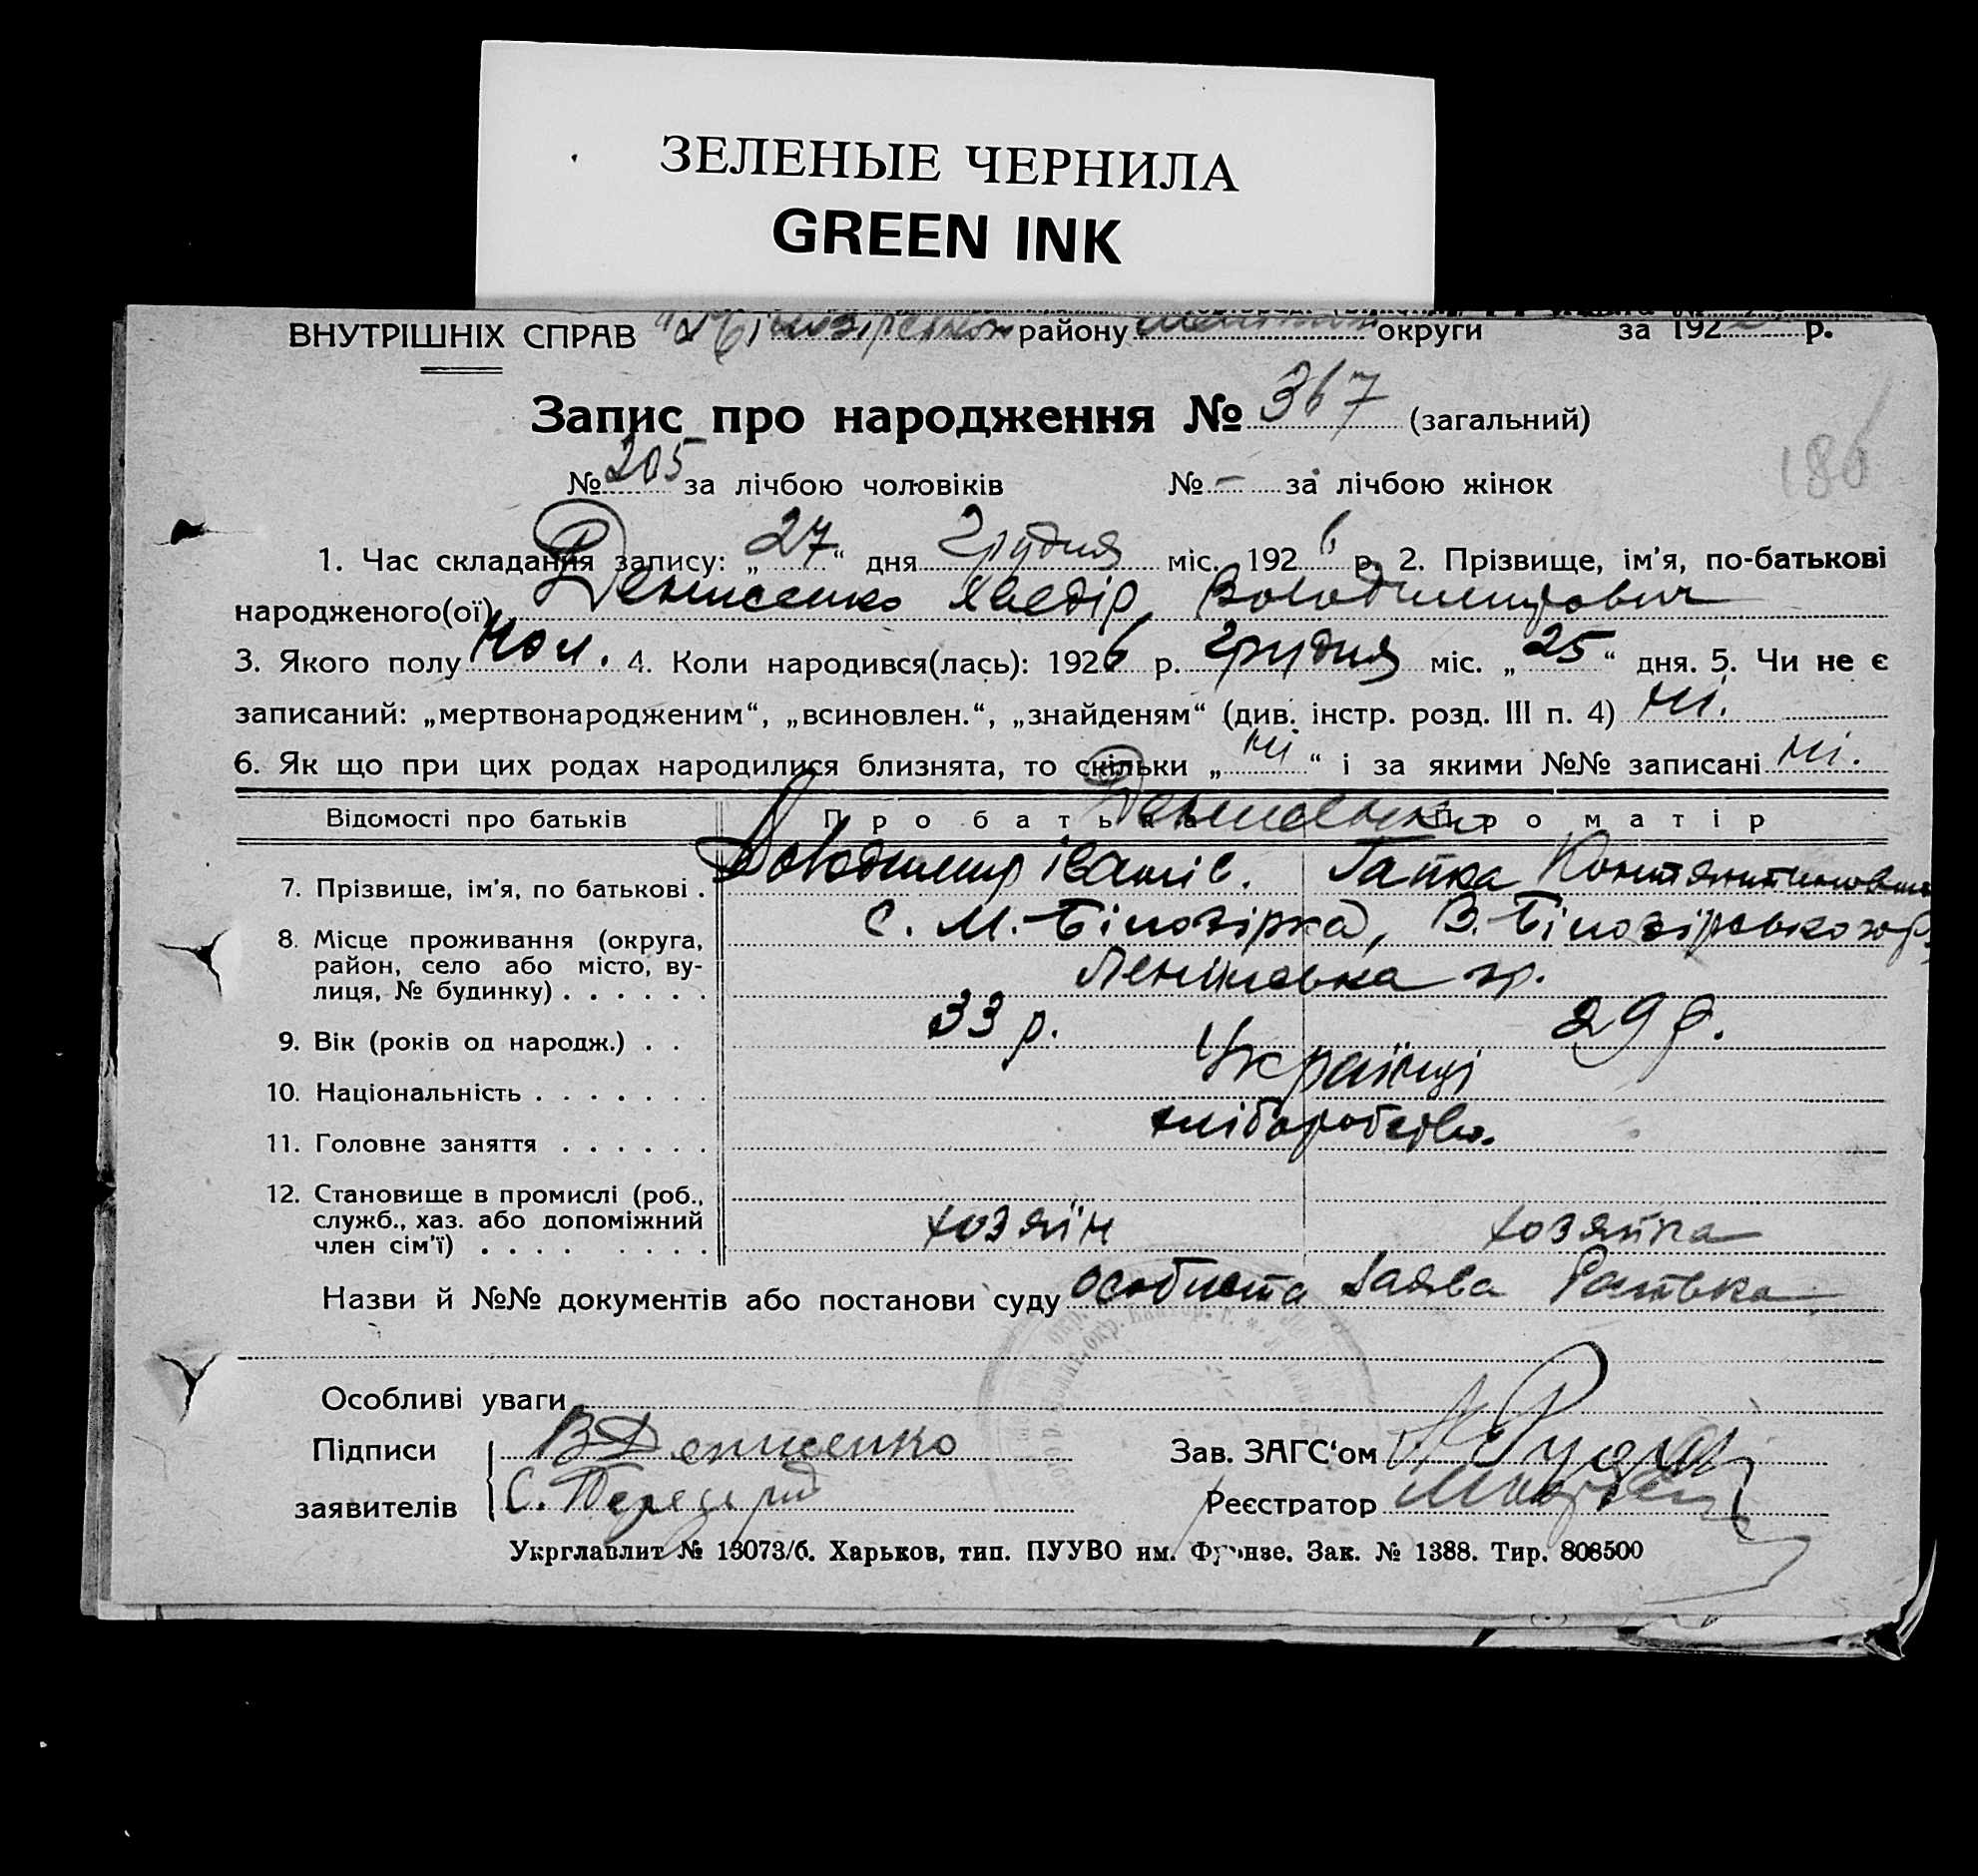 ЗЕЛЕНЫЕ ЧЕРНИЛА
GREEN INK
ВНУТРІШНІХ СПРАВ району округи за 192 р.
Запис про народження № 367 (загальний)
186
№ 205 за лічбою чоловіків № – за лічбою жінок
1. Час складання запису: „ 27 “ дня Грудня міс. 1926 р. 2. Прізвище, ім'я, по-батькові
народженого(ої) Денисенко Хведір Володимирович
3. Якого полу чол. 4. Коли народився(лась): 1926 р. Грудня міс. „ 25 “ дня. 5. Чи не є
записаний: „мертвонародженим“, „всиновлен.“, „знайденям“ (див. інстр. розд. III п. 4) ні.
6. Як що при цих родах народилися близнята, то скільки „ ні “ і за якими №№ записані ні.
Відомості про батьків Про батька Про матір
Денисенко
7. Прізвище, ім'я, по батькові . Володимир Іванів. Гапка
8. Місце проживання (округа, С. М.-Білозірка, В.-Білозірського р.
район, село або місто, ву-
лиця, № будинку) . . . . . .
9. Вік (років од народж.) . . 33 р. 29 р.
10. Національність . . . . . . . Українці
11. Головне заняття . . . . . . хліборобство.
12. Становище в промислі (роб.,
служб., хаз. або допоміжний хозяїн хозяйка
член сім'ї) . . . . . . . .
Назви й №№ документів або постанови суду особиста заява батька
Особливі уваги
Підписи В Денисенко Зав. ЗАГС'ом
заявителів С. Реєстратор
Укрглавлит № 13073/б. Харьков, тип. ПУУВО им. Фрунзе. Зак. № 1388. Тир. 808500